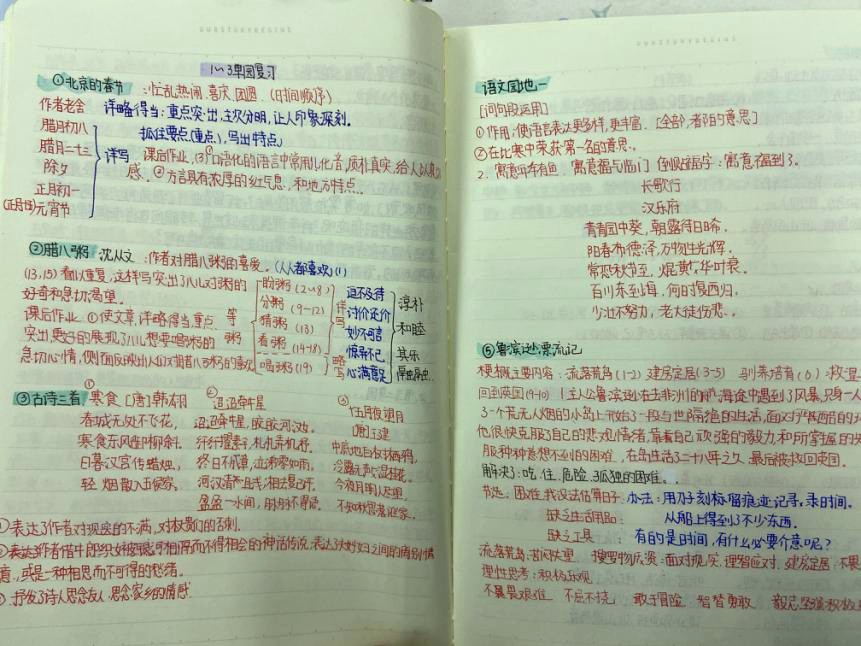 1~3单园复习
①北京的春节:忙乱热闹 喜庆 团圆.(时间顺序)
作者老舍 详略得当:重点突出,主次分明,让人印象深刻。
抓住要点(重点),写出特点
腊月初八
腊月二十三
除夕
正月初一
(正月十五)元宵节
详写
课后作业,(3)①口语化的语言中常用儿化音,质朴真实,给人以亲切
感.②方言具有浓厚的 气息,和地方特点..
②腊八粥 沈从文:作者对腊八粥的喜爱。(人人都喜欢)(1)
(13,15)看似重复,这样写突出了八儿对粥的
好奇和急切渴望。
课后作业 ①使文章,详略得当,重点
突出,更好的展现了八儿想要喝粥的
急切心情,侧面反映出人们对腊八粥的喜欢
等粥
盼粥(2~8)
分粥(9-12)
猜粥(13)
看粥(14-18)
喝粥(19)
详写
略写
迫不及待
讨价还价
妙不可言
惊异不已
心满意足
淳朴
和睦
其乐
③古诗三首 ①寒食 [唐]韩翃
春城无处不飞花,
寒食东风御柳斜.
日暮汉宫传蜡烛,
轻烟散入五侯家.
② 迢迢牵牛星
迢迢牵牛星,皎皎河汉女.
纤纤擢素手,札札弄机杼.
终日不成章,泣涕零如雨.
河汉清且浅,相去复几许.
盈盈一水间,脉脉不得语.
③ 十五夜望月
[唐]王建
中庭地白树栖鸦,
冷露无声湿桂花.
今夜月明人尽望,
不知秋思落谁家.
①表达了作者对现实的不满,对权贵们的否刺.
②表达作者借牛郎织女被银河相隔而不得相会的神话传说,表达了夫妻之间的离别情
意.,或是一种相思而不可得的愁绪。
③.抒发了诗人思念友人,思念家乡的情感.
语文园地一
[词句段运用]
①作用:使语言表达更多样,更丰富.[全部,都的意思]
②在比赛中荣获第一名的意思。
2.寓意年年有鱼 寓意福气临门 倒贴福字:寓意福到了。
长歌行
汉乐府
青青园中葵,朝露待日晞.
阳春布德泽,万物生光辉.
常恐秋节至,焜黄华叶衰.
百川东到海,何时复西归.
少壮不努力,老大徒伤悲..
⑤鲁滨逊漂流记
梗概主要内容:流落荒岛(1-2) 建房定居(3-5) 驯养培育(6):救
回到英国(9-10)
他很快克服了自己的悲观情绪,靠着自己顽强的毅力和所掌握的
服种种意想不到的困难.在岛生活了二十八年之久.最后被救回英国.
解决了:吃.住.危险.孤独的困难..
节选:困难:我没法估算日子:办法:用刀子刻标留痕迹记录,录时间。
缺乏生活用品: 从船上得到了不少东西.
缺乏工具: 有的是时间,有什么必要介意呢?
理性思考:积极乐观
不畏艰难 不屈不挠 敢于冒险 智替勇敢